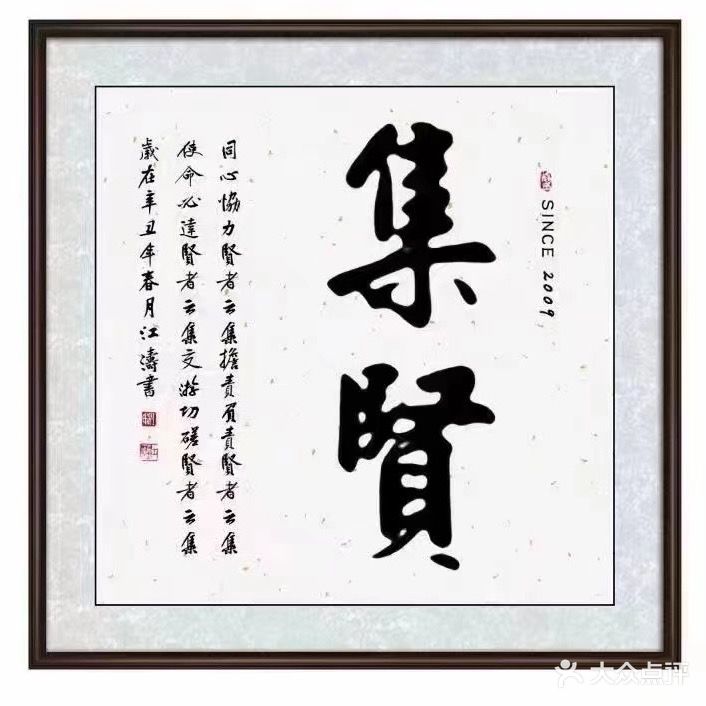 SINCE 2009
集賢
同心協力賢者云集擔責負責賢者云集
使命必達賢者云集交游切磋賢者云集
歲在辛丑年春月江濤書
大众点评